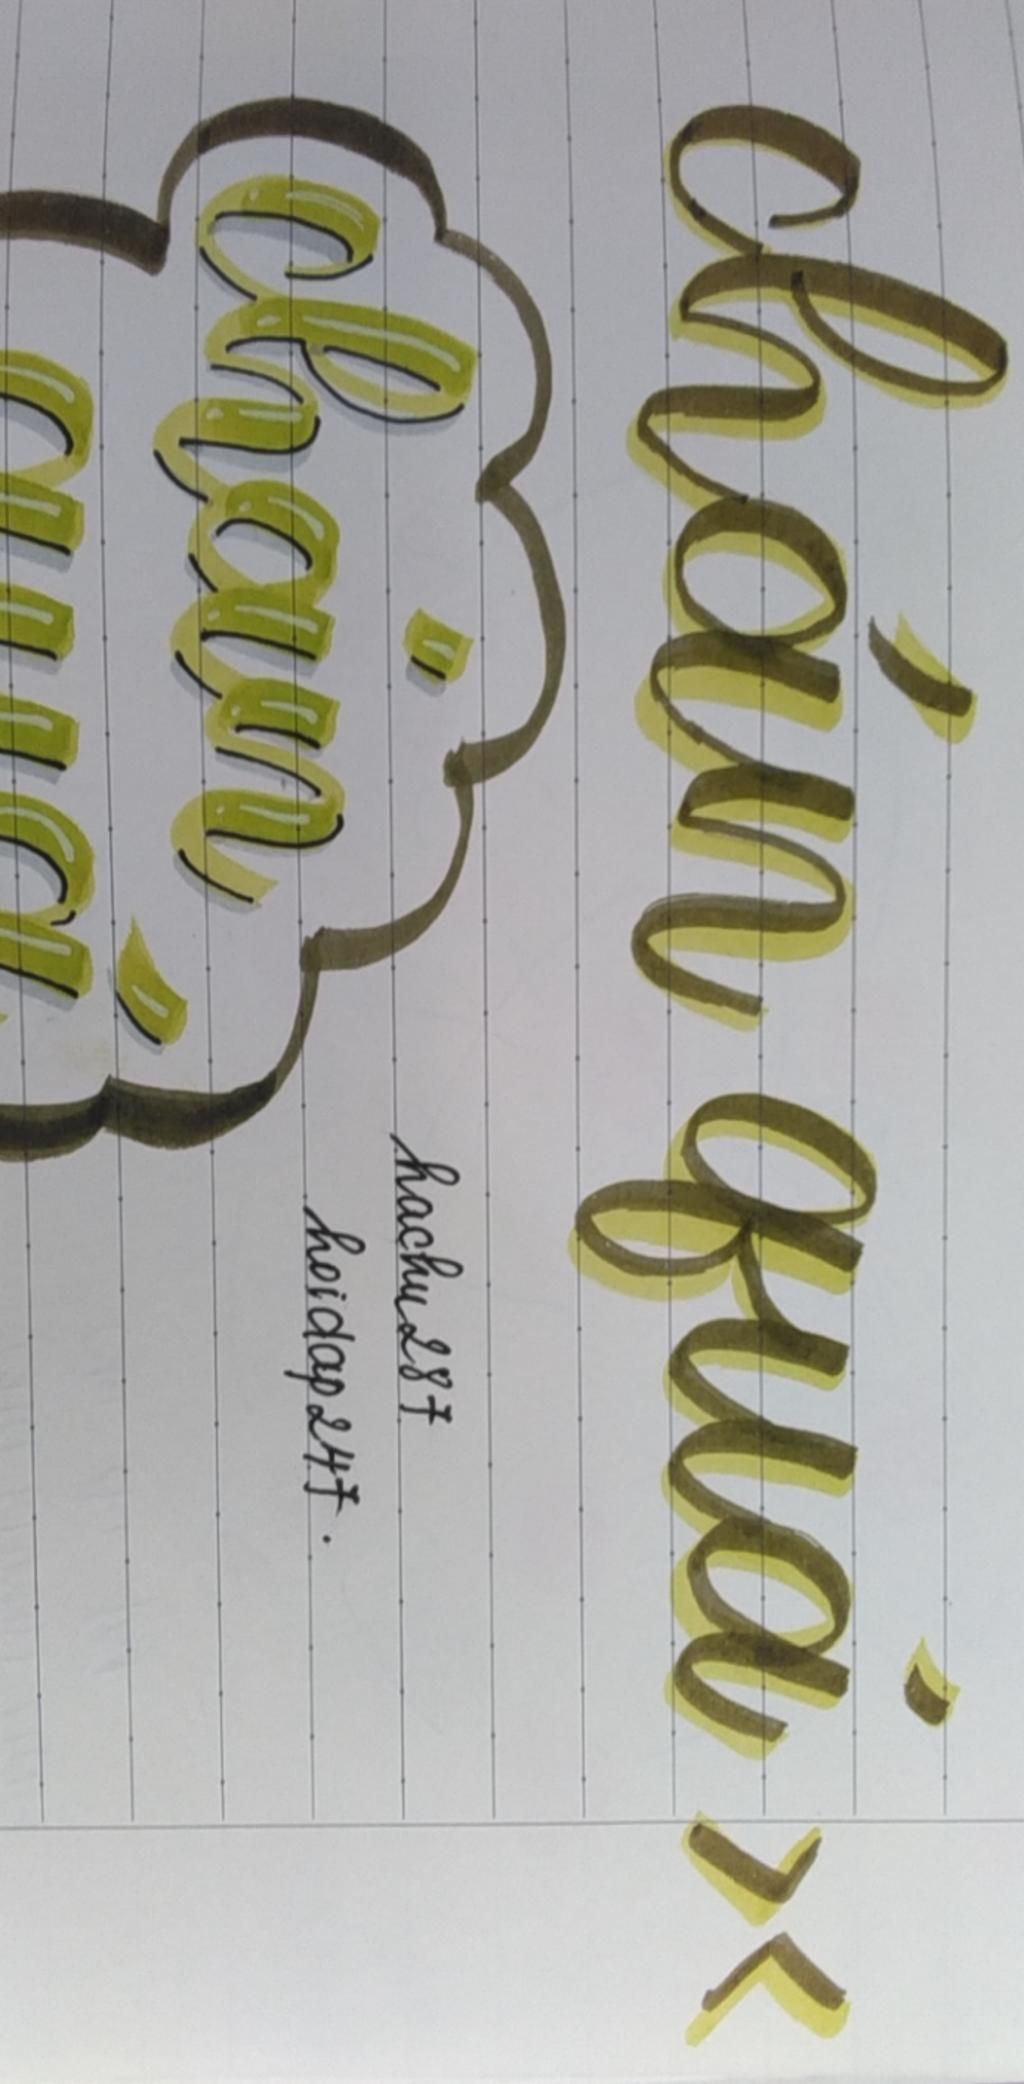 chán quá ><
hachu287
hoidap247.
chán
quá